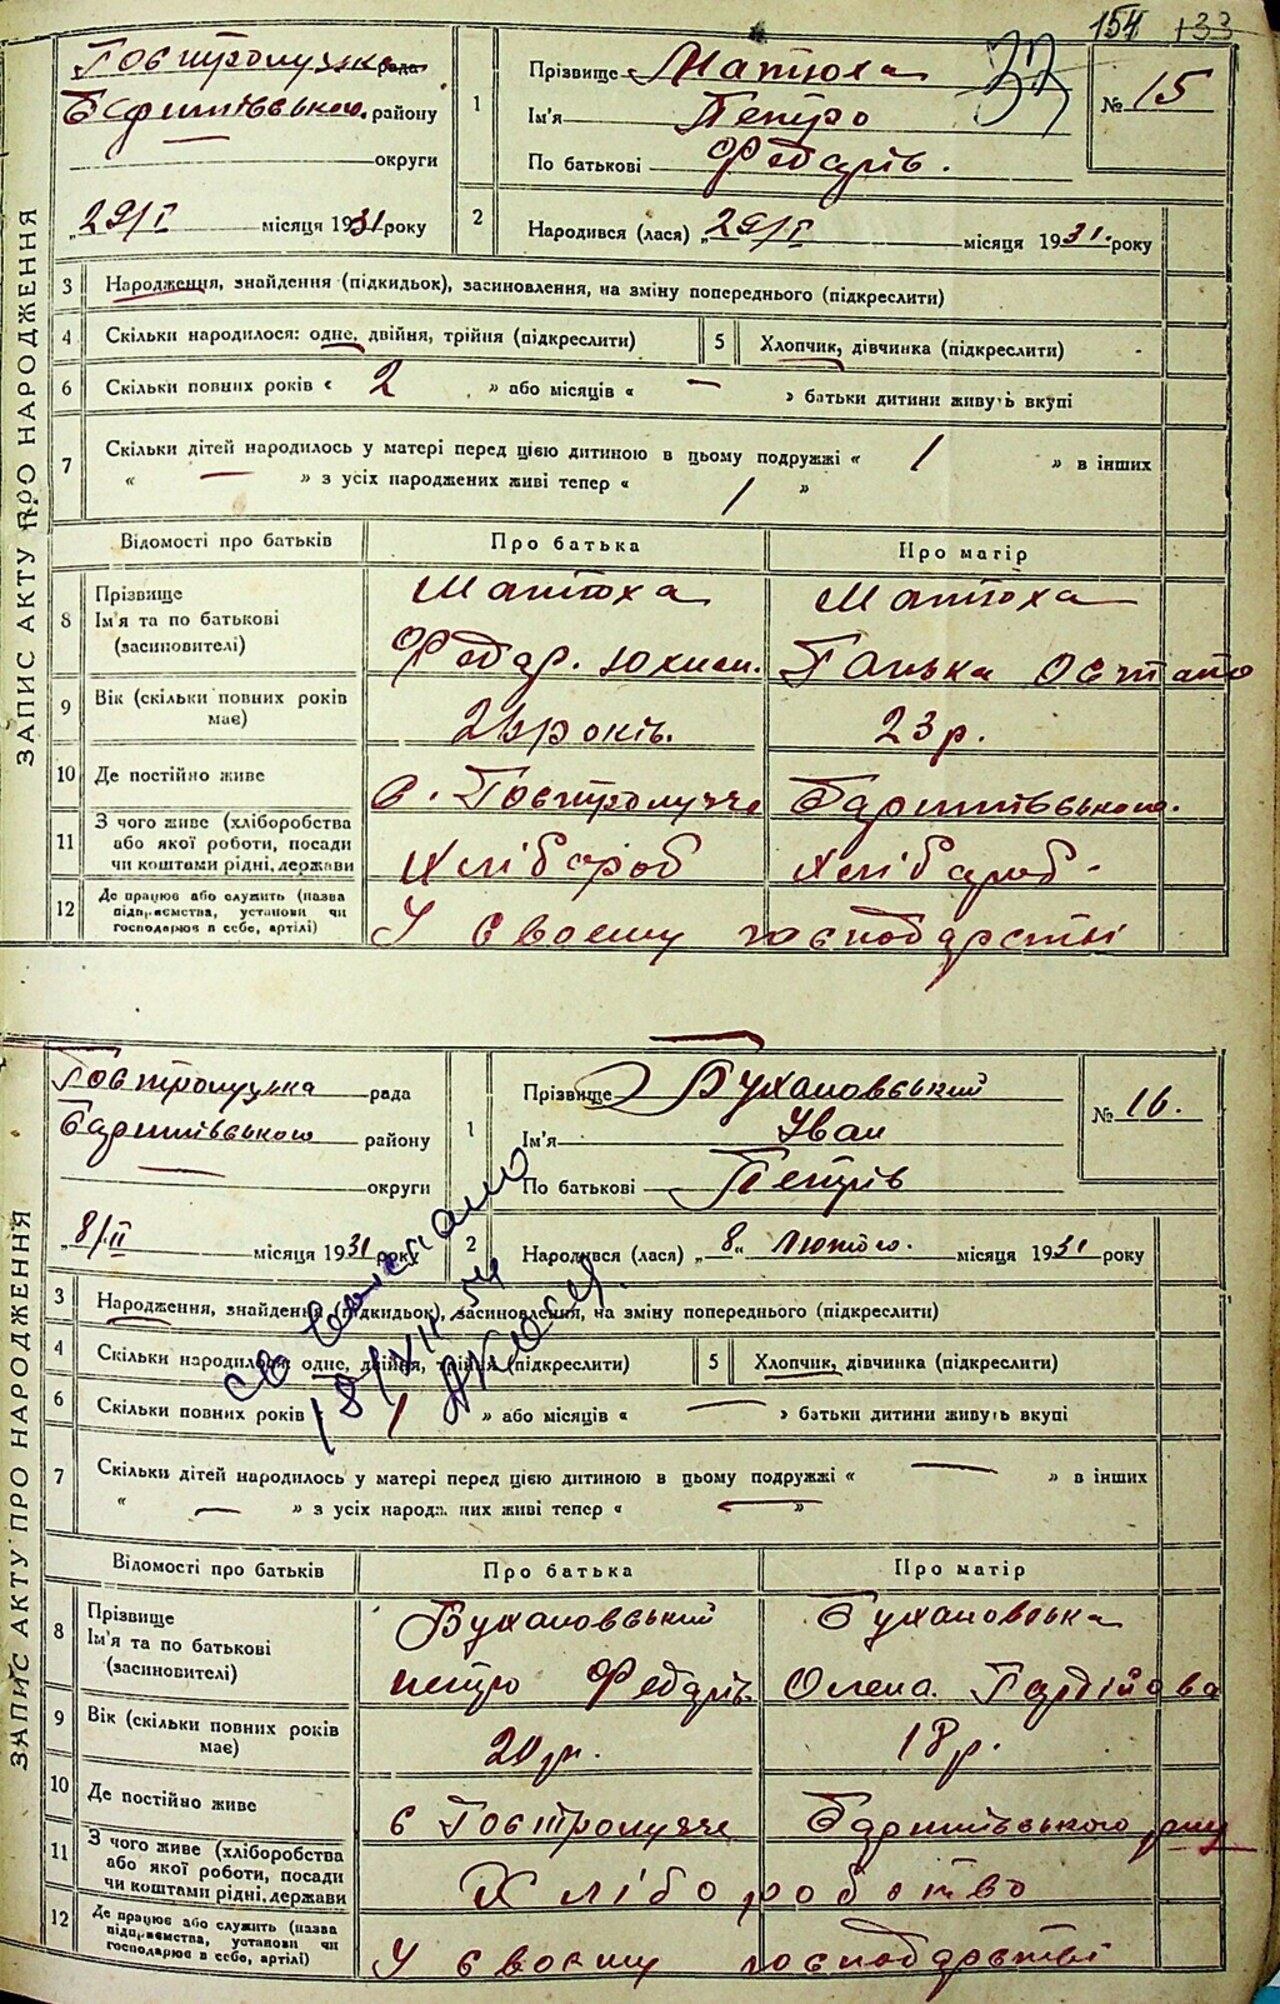 154 133
Гостролуцька рада
Баришівського району
округи
„29/I місяця 1931 року
1
Прізвище Матюха
Ім'я Петро
По батькові Федорів.
№ 15
2
Народився (лася) „29/I місяця 1931. року
ЗАПИС АКТУ ПРО НАРОДЖЕННЯ
3 Народження, знайдення (підкидьок), засиновлення, на зміну попереднього (підкреслити)
4 Скільки народилося: одне, двійня, трійня (підкреслити) 5 Хлопчик, дівчинка (підкреслити)
6 Скільки повних років « 2 » або місяців « — » батьки дитини живуть вкупі
7 Скільки дітей народилось у матері перед цією дитиною в цьому подружжі « 1 » в інших
« — » з усіх народжених живі тепер « 1 »
Відомості про батьків Про батька Про матір
8 Прізвище
Ім'я та по батькові
(засиновителі)
Матюха Матюха
Федор. Юхим. Ганька Остапо
9 Вік (скільки повних років має) років. 23 р.
10 Де постійно живе с. Гостролуччє Баришівського.
11 З чого живе (хліборобства
або якої роботи, посади
чи коштами рідні, держави
Хлібороб хлібороб-
12 Де працює або служить (назва
підприємства, установи чи
господарює в себе, артілі)
У своему господарстві
Гостролуцька рада
Баришівського району
округи
„8/II місяця 1931 року
1
Прізвище Бухановський
Ім'я Іван
По батькові Петрів
№ 16.
2
Народився (лася) „8„ Лютого. місяця 1931 року
18/XII 54
ЗАПИС АКТУ ПРО НАРОДЖЕННЯ
3 Народження, знайдення (підкидьок), засиновлення, на зміну попереднього (підкреслити)
4 Скільки народилося: одне, двійня, трійня (підкреслити) 5 Хлопчик, дівчинка (підкреслити)
6 Скільки повних років 1 » або місяців « — » батьки дитини живуть вкупі
7 Скільки дітей народилось у матері перед цією дитиною в цьому подружжі « — » в інших
« — » з усіх народжених живі тепер « — »
Відомості про батьків Про батька Про матір
8 Прізвище
Ім'я та по батькові
(засиновителі)
Бухановський Бухановська
Петро Федорів. Олена. Гордійова
9 Вік (скільки повних років має) 20 р. 18 р.
10 Де постійно живе с Гостролуччє Баришівського р-ну
11 З чого живе (хліборобства
або якої роботи, посади
чи коштами рідні, держави
Хліборобство
12 Де працює або служить (назва
підприємства, установи чи
господарює в себе, артілі)
У своему господарстві